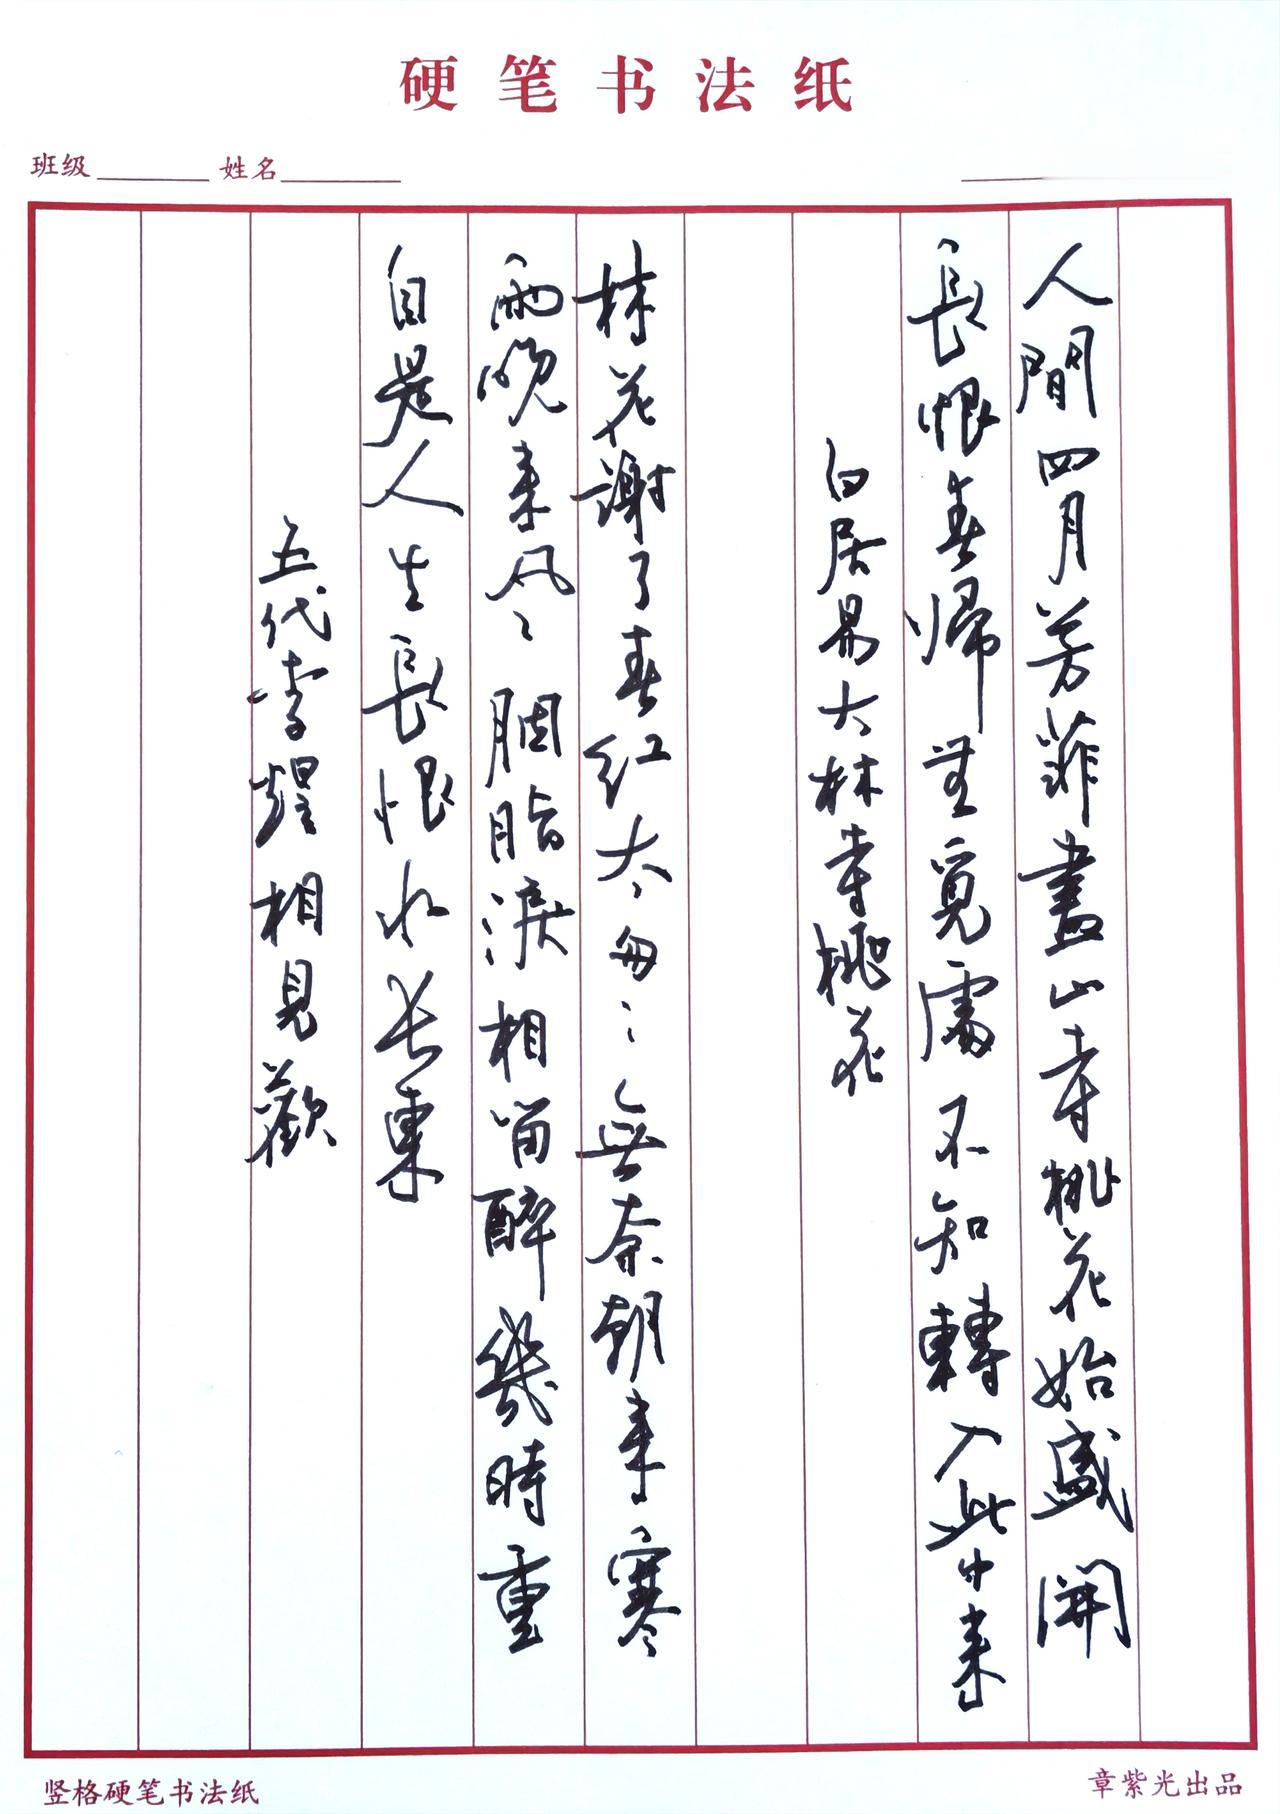 硬笔书法纸
班级 姓名
人間四月芳菲盡山寺桃花始盛開
長恨春歸無覓處不知轉入此中来
白居易大林寺桃花
林花謝了春红太匆々無奈朝来寒
雨晚来风 胭脂淚相留醉幾時重
自是人生長恨水长東
五代李煜相見歡
竖格硬笔书法纸
章紫光出品